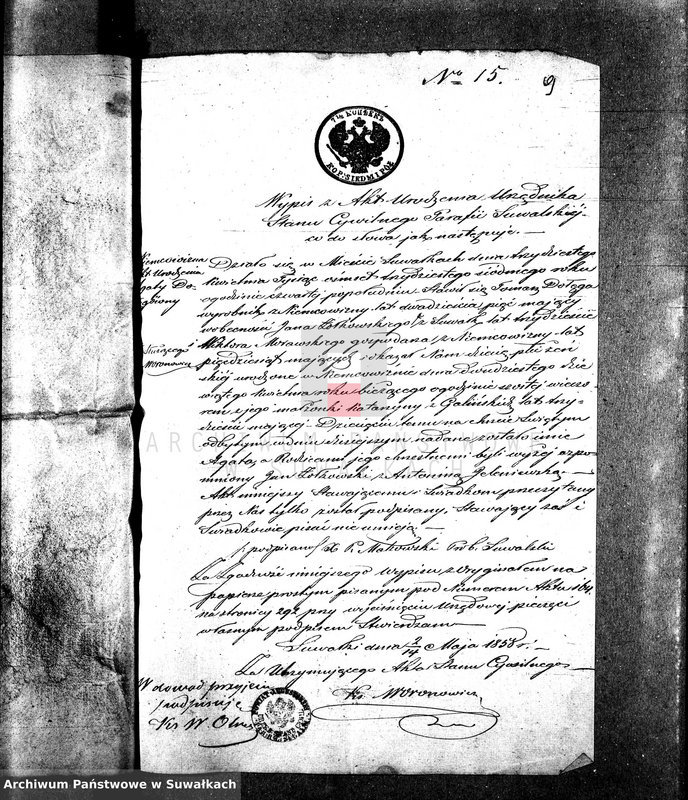 No 15. 9
7½ KOPIEK
KOP. SIEDM I PÓŁ
Wypis z Akt Urodzenia Urzędnika
Stanu Cywilnego Parafii Suwalskiéj
co do słowa jak następuje.
Niemcowizna
Akt Urodzenia
Agaty Do-
łęgówny
Działo się w Mieście Suwałkach dnia trzydziestego
kwietnia Tysiąc ośmset trzydziestego siódmego roku
o godzinie czwartéj popołudniu. Stawił się Tomasz Dołęga
wyrobnik z Niemcowizny lat dwadzieścia pięć mający
w obecności Jana Żołkowskiego z Suwałk lat trzydzieści
Wiktora Morawskiego gospodarza z Niemcowizny lat
pięćdziesiąt mających i okazał Nam dziecię płci żeń
skiéj urodzone w Niemcowiznie dnia dwudziestego dzie
wiątego kwietnia roku bieżącego o godzinie szóstéj wieczo
rem z jego małżonki Katarzyny z Galińskich lat trzy
dzieści mającéj. Dziecięciu temu na chrzcie Świętym
odbytym w dniu dzisiejszym nadane zostało imie
Agata, a Rodzicami jego chrzestnemi byli wyżéj wspo
mniony Jan Żołkowski z Antonina Jeleniewską.
Akt niniejszy Stawającemu i Świadkom przeczytany
przez Nas tylko został podpisany, Stawający zaś i
Świadkowie pisać nie umieją.
/podpisano/ X. P. Makowski Prob. Suwalski
Za zgodność niniejszego wypisu z oryginałem na
papierze prostym pisanym pod Numerem Aktu 164
na stronicy 292 przy wyciśnięciu Urzędowéj pieczęci
własnym podpisem Stwierdzam
Suwałki dnia 2/14 Maja 1858 r.
Za Utrzymującego Akta Stanu Cywilnego
Ks. Woronowicz
Woronowicz
W dowód przyjęcia
podpisuję
Ks W.
ARCHIWUM PAŃSTWOWE
W SUWAŁKACH
Archiwum Państwowe w Suwałkach